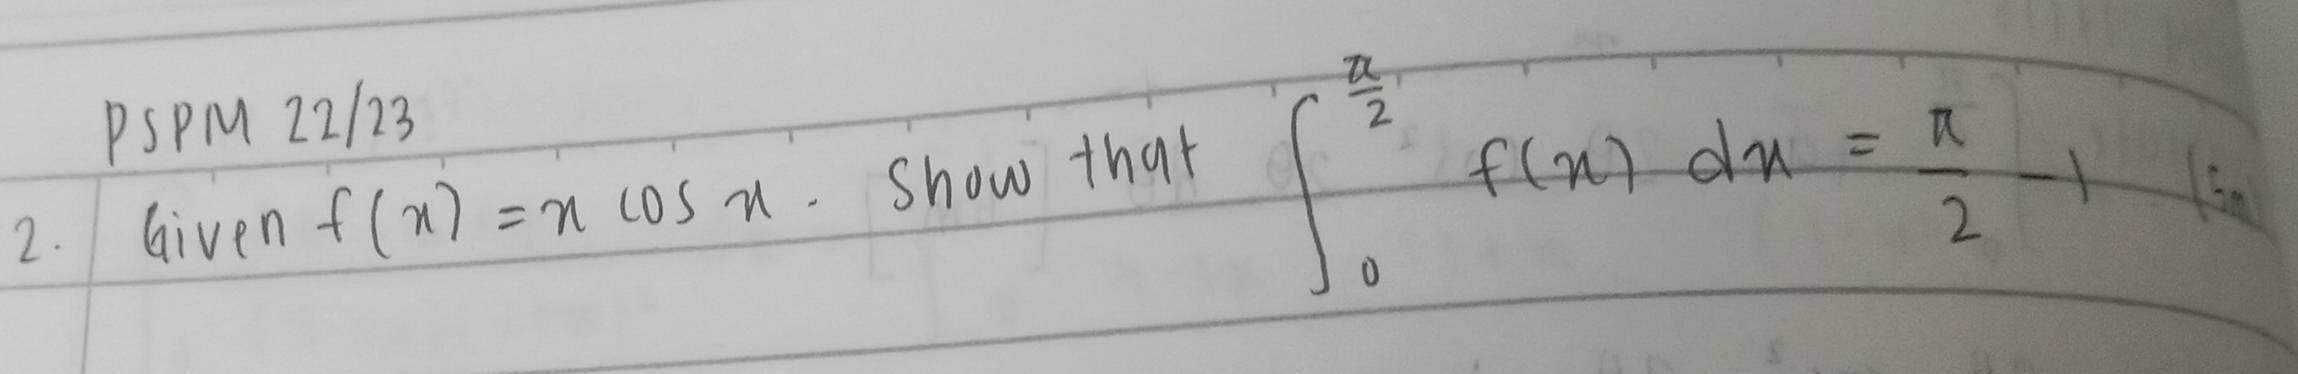 PSPM 22/23
2. Given f(x) = x cos x. Show that ∫₀^(π/2) f(x) dx = π/2 - 1